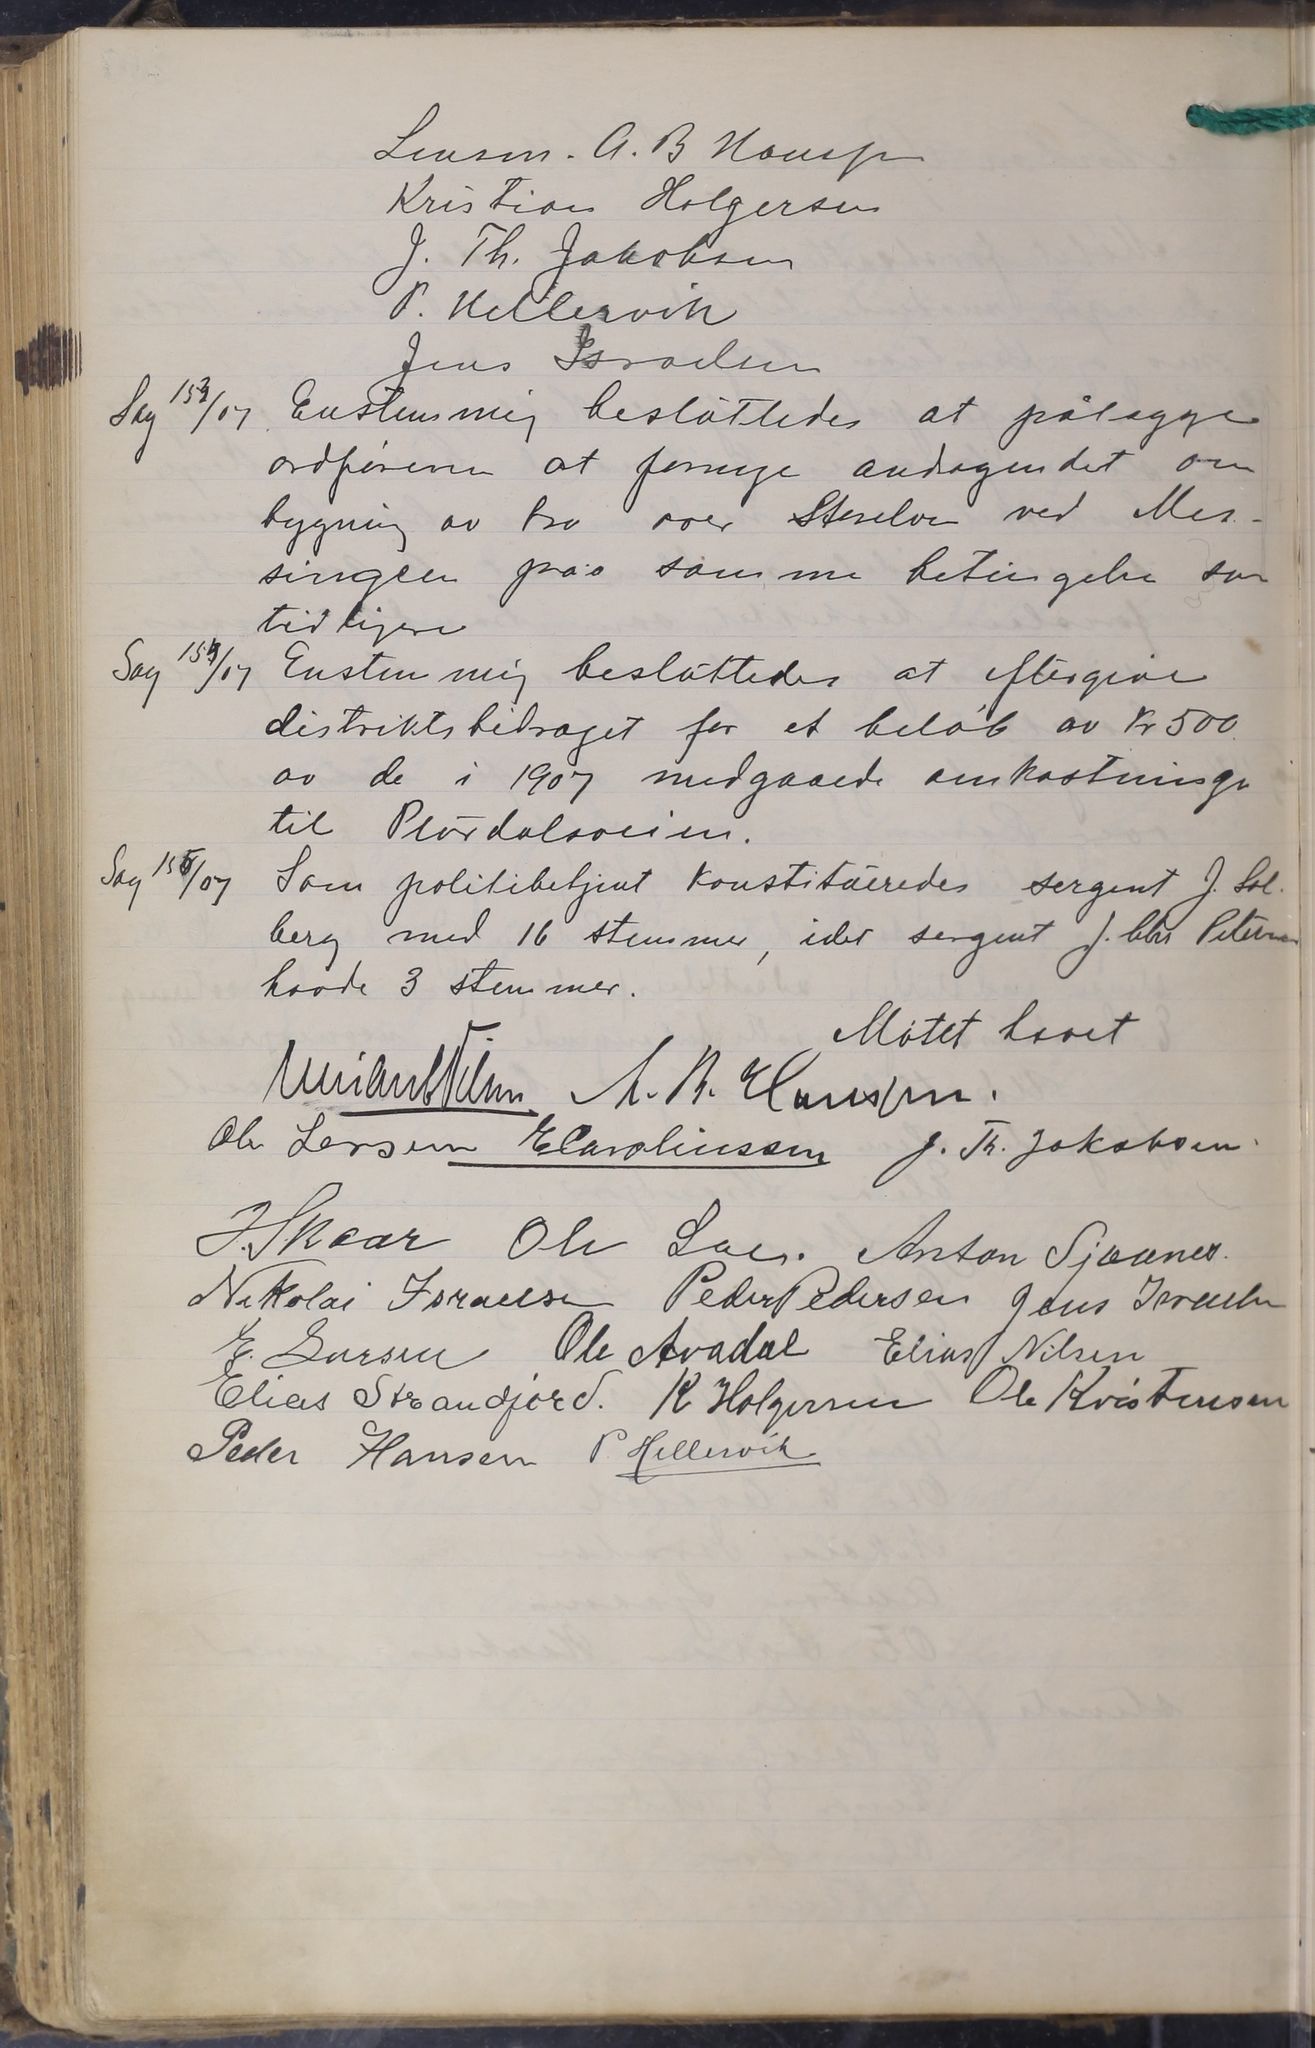 Lensm. A. B Hansen
Kristian Holgersen
J. Th. Jakobsen
P. Hellesvik
Jens Israelsen
Sag 153/07 Enstemmig besluttedes at pålægge
ordføreren at fornye andragendet om
bygning av bro over Stenelven ved Mes-
singen paa samme betingelse som
tidligere
Sag 154/07 Enstemmig besluttedes at eftergive
distriktsbidraget for et beløb av Kr 500
av de i 1907 medgaaede omkostninger
til Plurdalsveien.
Sag 155/07 Som politibetjent konstitueredes sergent J. Sol-
berg med 16 stemmer, idet sergent J. Chr Petersen
havde 3 stemmer.
Møtet hævet
A. B. Hansen.
Ole Larsen E Caroliussen J. Th. Jakobsen
J. Skaar Ole Anton Sjaanes.
Nikolai Israelsen Peder Pedersen Jens Israelsen
E. Larsen Ole Avadal Elias Nilsen
Elias Strandjord. K Holgersen Ole Kristensen
Peder Hansen P. Hellesvik